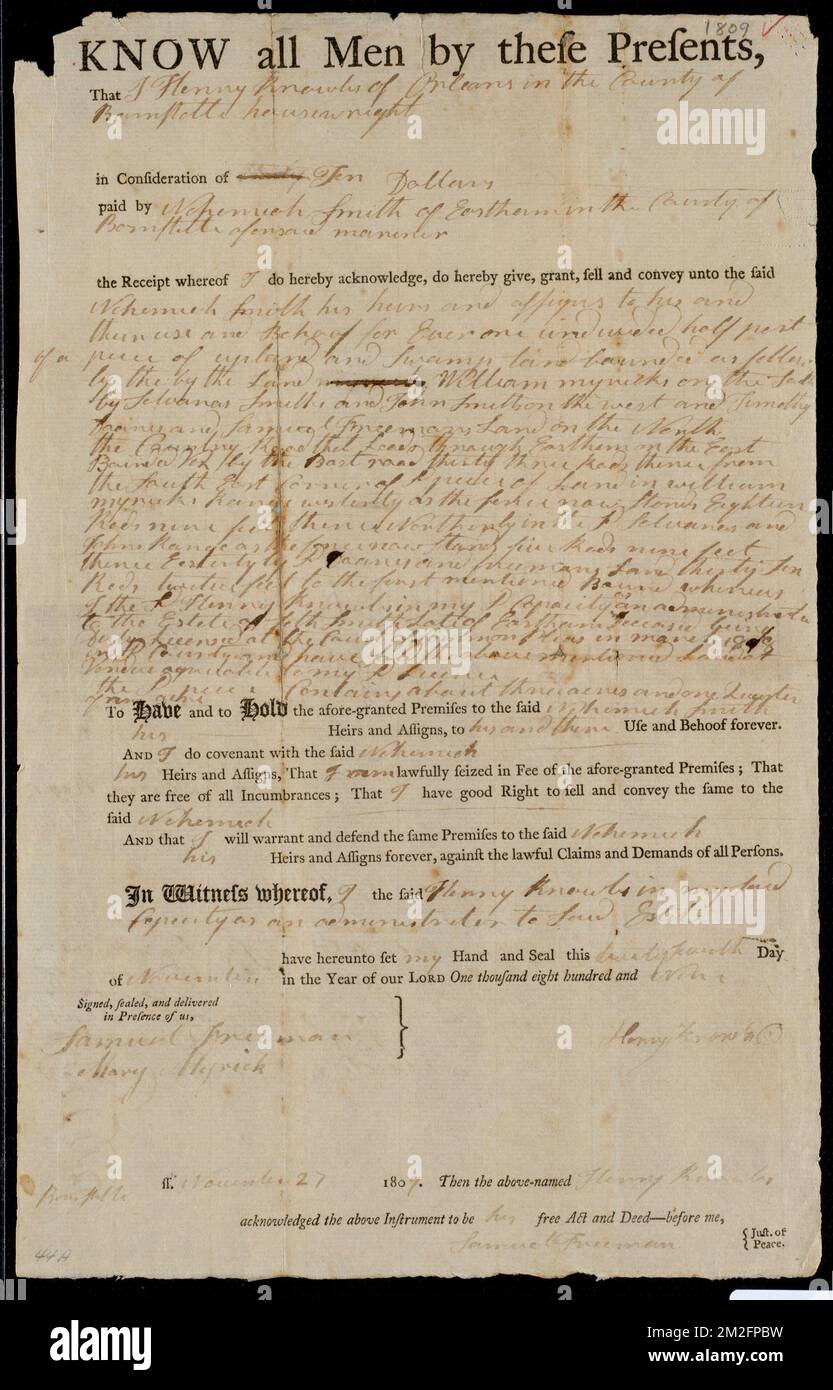 1809
KNOW all Men by theſe Preſents,
That I Henry Knowles of Orleans in the County of
Barnſtable housewright
in Conſideration of Ten Dollars
paid by Nehemiah Smith of Eastham in the County of
Barnſtable aforesaid mariner
the Receipt whereof I do hereby acknowledge, do hereby give, grant, ſell and convey unto the ſaid
Nehemiah Smith his heirs and aſsigns to his and
their use and Behoof for Ever one undivided half part
of a piece of upland and Swamp land bounded as follows
by the by the Land William myricks on the South
by Selvanas Smiths and John Smiths on the west and Timothy
and Samuel Freemans Land on the North
the Country Road that Leads through Eastham on the East
by the thirty three Rods thence from
the South East Corner of piece of Land in william
myricks Range westerly as the fence now Stands Eighteen
Rods nine feet thence Northerly in the Selvanas and
Johns Range as the fence now Stands five Rods nine feet
thence Easterly by and freemans Land thirty
Rods twelve feet to the first mentioned Bound whereas
I the Henry Knowles in my Capacity as an administrator
to the Estate of Smith Late of Eastham being
duly Licensed at the Court of common pleas in
County and have the above mentioned Land at
Vendue to my
the piece Contains about three acres and one Quarter
To Have and to Hold the afore-granted Premiſes to the ſaid Nehemiah Smith
his Heirs and Aſſigns, to his and their Uſe and Behoof forever.
AND I do covenant with the ſaid Nehemiah
his Heirs and Aſſigns, That I am lawfully ſeized in Fee of the afore-granted Premiſes; That
they are free of all Incumbrances; That I have good Right to ſell and convey the ſame to the
ſaid Nehemiah
AND that I will warrant and defend the ſame Premiſes to the ſaid Nehemiah
his Heirs and Aſſigns forever, againſt the lawful Claims and Demands of all Perſons.
In Witneſs whereof, I the ſaid Henry Knowles in my said
Capacity as an administrator to Said Estate
have hereunto ſet my Hand and Seal this Day
of November in the Year of our LORD One thouſand eight hundred and
Signed, ſealed, and delivered
in Preſence of us,
Samuel Freeman
Henry Knowles
Mary Myrick
Barnſtable ſſ. November 27 1809. Then the above-named Henry Knowles
acknowledged the above Inſtrument to be his free Act and Deed—before me,
Samuel Freeman { Juſt. of
Peace.
44A
alamy
Image ID: 2M2FPBW
www.alamy.com